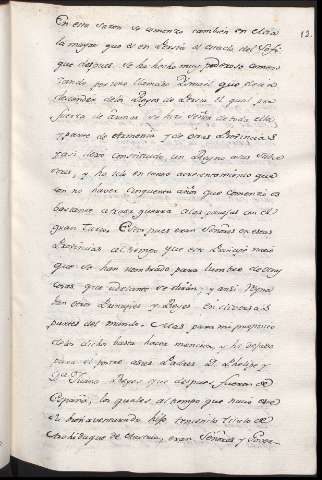 12.
En esta sazon se comenzo tambien en el Asia
la mayor que es en Persia el estado del Sofi
que despues se ha hecho muy poderoso comen
zando por uno llamado Ismael que
de los Reyes de Persia el qual por
fuerza de armas se hizo Señor de toda ella,
y parte de Armenia y de otras Provincias
y asi dexo constituido un Reyno
y ha ido en tanto acrecentamiento que
con no haver cinquenta años que comenzó es
bastante a traer guerra a las parejas con el
gran Turco. Estos pues eran Señores en estas
Provincias al tiempo que este Principe nació
que se han nombrado para lumbre de muy
cosas que adelante se dirán, y ansi Reyna
ban otros Principes y Reyes en diversas
partes del mundo. Mas para mi proposito
de los dichos basta hacer mencion, y he dejado
para el postre a sus Padres D. Phelipe y
D.ª Juana Reyes que despues fueron de
España, los quales al tiempo que nació este
su bienaventurado hijo tenian titulo de
Archiduque de Austria, eran Señores y